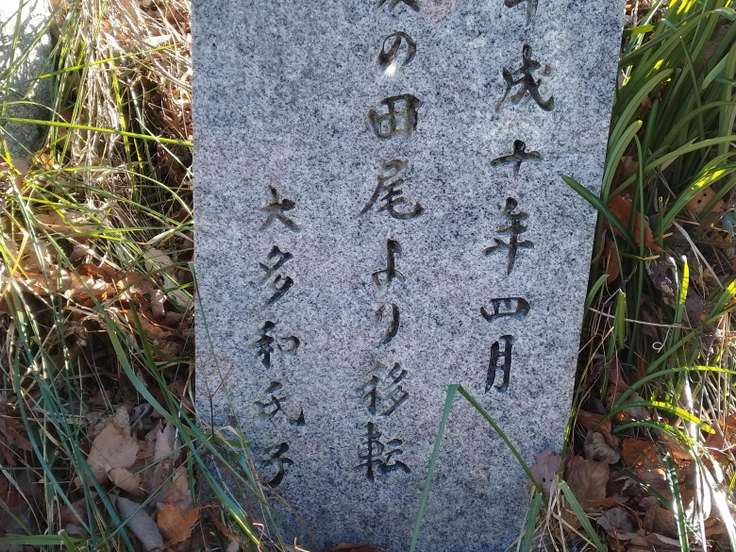 平成十年四月
の田尾より移転
大多和氏子